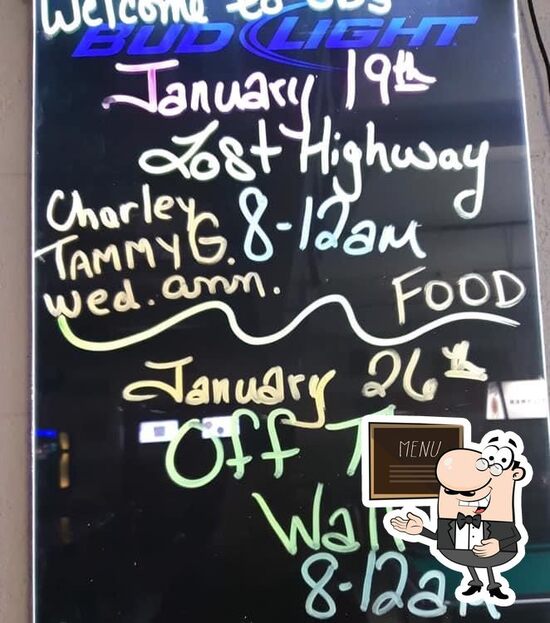 Welcome to
BUD LIGHT
January 19th
Lost Highway
8-12am
Charley
TAMMY G.
Wed. ann.
FOOD
January 26th
Off
MENU
8-12a